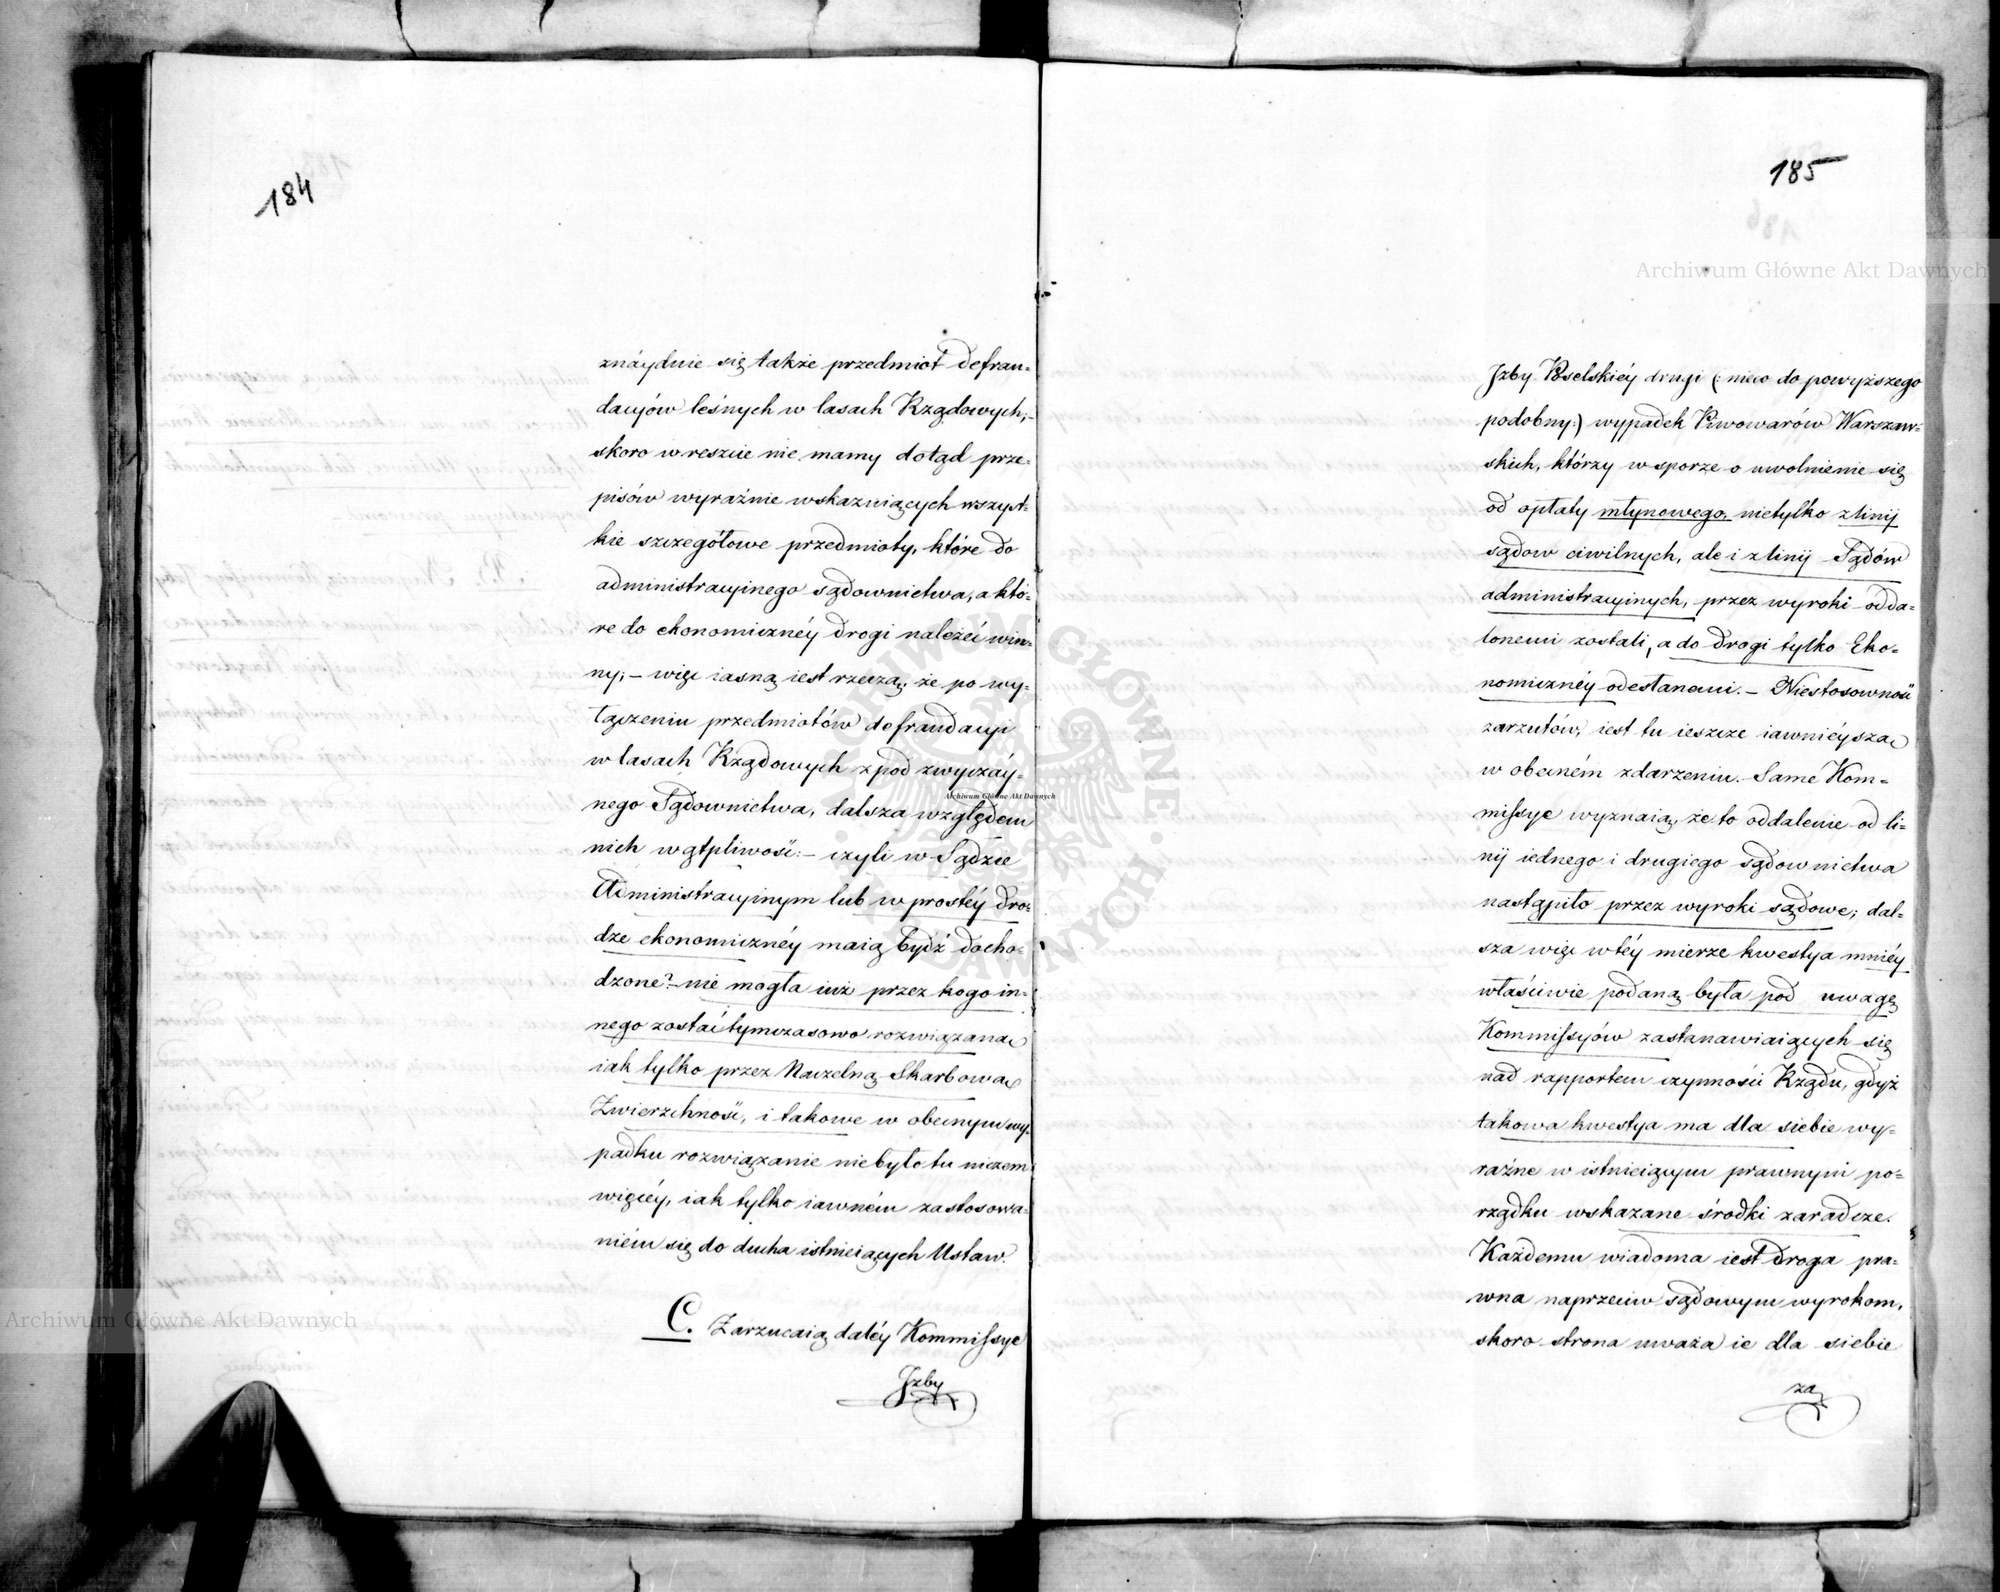 184
znáydnie się także przedmiot defran-
dacyów leśnych w lasach Rządowych;-
skoro w reszcie nie mamy dotąd prze-
pisów wyraźnie wskazuiących wszyst-
kie szczegółowe przedmioty, które do
administracyinego sądownictwa, a któ-
re do ekonomicznéy drogi należeć win-
ny; – więc iasną iest rzeczą, że po wy-
łączeniu przedmiotów defraudacyi
w lasach Rządowych z pod zwyczáy-
nego Sądownictwa, dalsza względem
nich wątpliwość: – czyli w Sądzie
Administracyinym lub w prostéy dro-
dze ekonomicznéy maią bydź docho-
dzone? – nie mogła iuż przez kogo in-
nego zostać tymczasowo rozwiązaną
iak tylko przez Naczelną Skarbową
Zwierzchność, i takowe w obecnym wy-
padku rozwiązanie niebyło tu niczem
więcéy, iak tylko iawném zastosowa-
niem się do ducha istnieiących Ustaw.
C. Zarzucaią daléy Kommissye
Jzby
185
Jzby Poselskiéy drugi (: nieco do powyższego
podobny:) wypadek Piwowarów Warszaw-
skich, którzy w sporze o uwolnienie się
od opłaty młynowego, nietylko z linij
sądow ciwilnych, ale i z linij Sądów
administracyinych, przez wyroki odda-
lonemi zostali, a do drogi tylko Eko-
nomicznéy odesłanemi. – Niestosowność
zarzutów, iest tu ieszcze iawniéyszą
w obecném zdarzeniu. Same Kom-
missye wyznaią, że to oddalenie od li-
nij iednego i drugiego sądownictwa
nastąpiło przez wyroki sądowe; dal-
sza więc w téy mierze kwestya mniéy
właściwie podaną była pod uwagę
Kommissyów zastanawiaiących się
nad rapportem czynności Rządu, gdyż
takowa kwestya ma dla siebie wy-
raźne w istnieiącym prawnym po-
rządku wskazane środki zaradcze.
Każdemu wiadoma iest droga pra-
wna naprzeciw sądowym wyrokom,
skoro strona uważa ie dla siebie
za
Archiwum Główne Akt Dawnych
Archiwum Główne Akt Dawnych
Archiwum Główne Akt Dawnych
ARCHIWUM GŁÓWNE AKT DAWNYCH